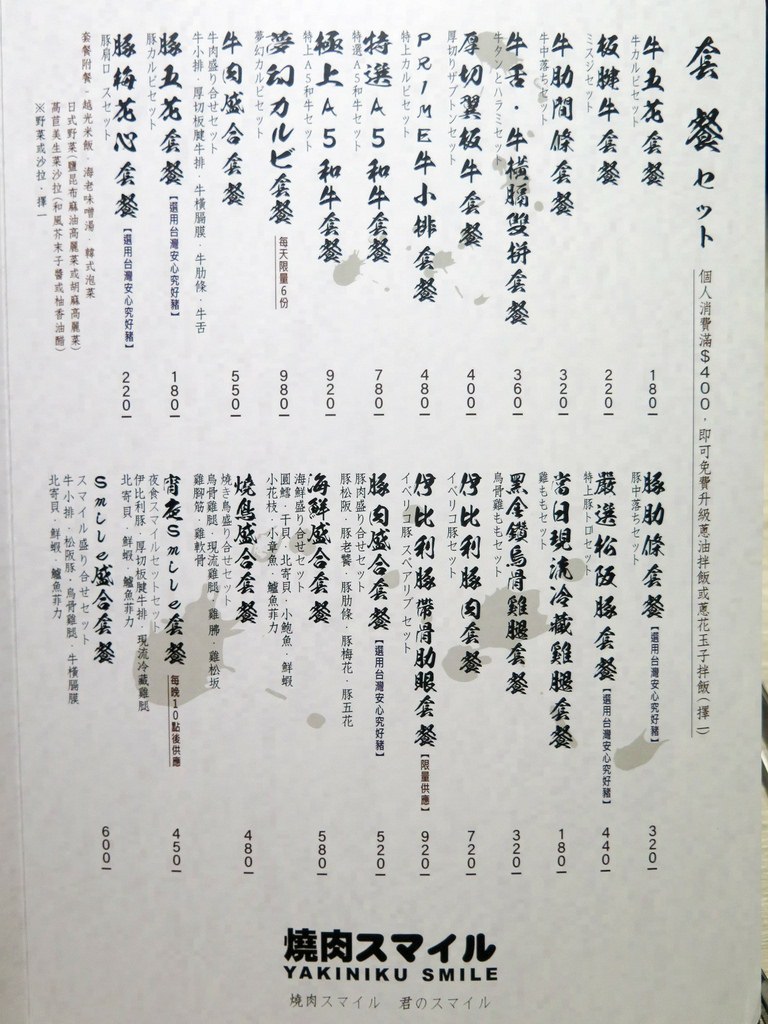 套餐セット
個人消費滿$400，即可免費升級蔥油拌飯或蔥花玉子拌飯(擇一)
牛五花套餐 180
牛カルビセット
板腱牛套餐 220
ミスジセット
牛肋間條套餐 320
牛中落ちセット
牛舌·牛橫膈雙拼套餐 360
牛タンとハラミセット
厚切翼板牛套餐 400
厚切りザブトンセット
PRIME牛小排套餐 480
特上カルビセット
特選A5和牛套餐 780
特選A5和牛セット
極上A5和牛套餐 920
特上A5和牛セット
夢幻カルビ套餐 每天限量6份 980
夢幻カルビセット
牛肉盛合套餐 550
牛肉盛り合せセット
牛小排·厚切板腱牛排·牛橫膈膜·牛肋條·牛舌
豚五花套餐【選用台灣安心究好豬】 180
豚カルビセット
豚梅花心套餐【選用台灣安心究好豬】 220
豚肩ロースセット
套餐附餐-越光米飯·海老味噌湯·韓式泡菜
日式野菜(鹽昆布麻油高麗菜或胡麻高麗菜)
萵苣美生菜沙拉(和風芥末子醬或柚香油醋)
※野菜或沙拉，擇一
豚肋條套餐【選用台灣安心究好豬】 320
豚中落ちセット
嚴選松阪豚套餐【選用台灣安心究好豬】 440
特上豚トロセット
當日現流冷藏雞腿套餐 180
雞ももセット
黑金鑽烏骨雞腿套餐 320
烏骨雞ももセット
伊比利豚肉套餐 720
イベリコ豚セット
伊比利豚帶骨肋眼套餐【限量供應】 920
イベリコ豚スペアリブセット
豚肉盛合套餐【選用台灣安心究好豬】 520
豚肉盛り合せセット
豚松阪·豚老饕·豚肋條·豚梅花·豚五花
海鮮盛合套餐 580
海鮮盛り合せセット
圓鱈·干貝·北寄貝·小鮑魚·鮮蝦
小花枝·小章魚·鱸魚菲力
燒鳥盛合套餐 480
燒き鳥盛り合せセット
烏骨雞腿·現流雞腿·雞胗·雞松坂
雞腳筋·雞軟骨
宵夜Smile套餐 每晚10點後供應 450
夜食スマイルセットセット
伊比利豚·厚切板腱牛排·現流冷藏雞腿
北寄貝·鮮蝦·鱸魚菲力
Smile盛合套餐 600
スマイル盛り合せセット
牛小排·松阪豚·烏骨雞腿·牛橫膈膜
北寄貝·鮮蝦·鱸魚菲力
燒肉スマイル
YAKINIKU SMILE
燒肉スマイル 君のスマイル